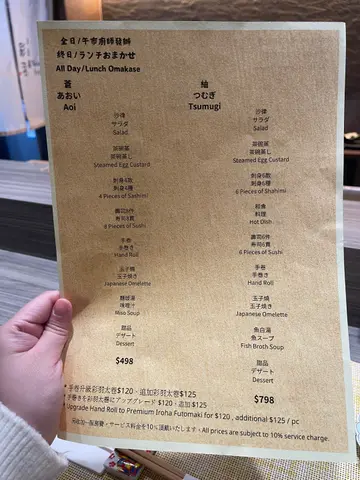 全日/午市廚師發辦
終日/ランチおまかせ
All Day/Lunch Omakase
蒼
あおい
Aoi
沙律
サラダ
Salad
茶碗蒸
茶碗蒸し
Steamed Egg Custard
刺身4款
刺身4種
4 Pieces of Sashimi
壽司8件
寿司8貫
8 Pieces of Sushi
手卷
手巻き
Hand Roll
玉子燒
玉子焼き
Japanese Omelette
麵豉湯
味噌汁
Miso Soup
甜品
デザート
Dessert
$498
紬
つむぎ
Tsumugi
沙律
サラダ
Salad
茶碗蒸
茶碗蒸し
Steamed Egg Custard
刺身6款
刺身6種
6 Pieces of Shahimi
和食
料理
Hot Dish
壽司6件
寿司6貫
6 Pieces of Sushi
手卷
手巻き
Hand Roll
玉子燒
玉子焼き
Japanese Omelette
魚白湯
魚スープ
Fish Broth Soup
甜品
デザート
Dessert
$798
* 手卷升級彩羽太卷$120、追加彩羽太卷$125
手巻きを彩羽太巻にアップグレード $120、追加 $125
Upgrade Hand Roll to Premium Iroha Futomaki for $120 , additional $125 / pc
另收加一服務費 / サービス料金を10%頂戴いたします。All prices are subject to 10% service charge.